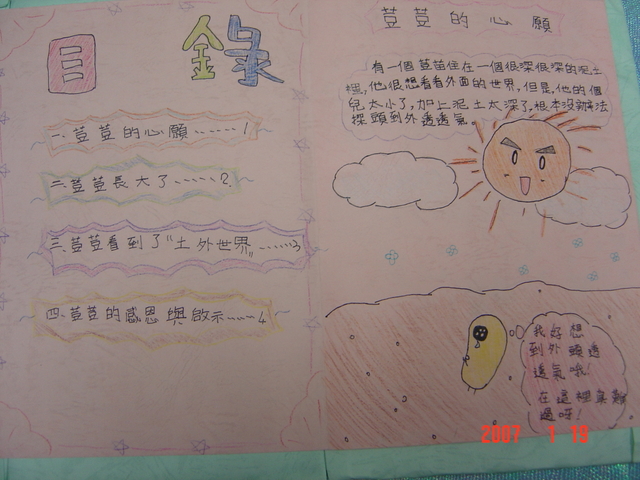 目錄
一、荳荳的心願……1
二、荳荳長大了……2
三、荳荳看到了"土外世界"……3
四、荳荳的感恩與啟示……4
荳荳的心願
有一個荳苗住在一個很深很深的泥土
裡,他很想看看外面的世界,但是,他的個
兒太小了,加上泥土太深了,根本沒辦法
探頭到外透透氣。
我好想
到外頭透
透氣哦!
在這裡真難
過呀!
2007 1 19